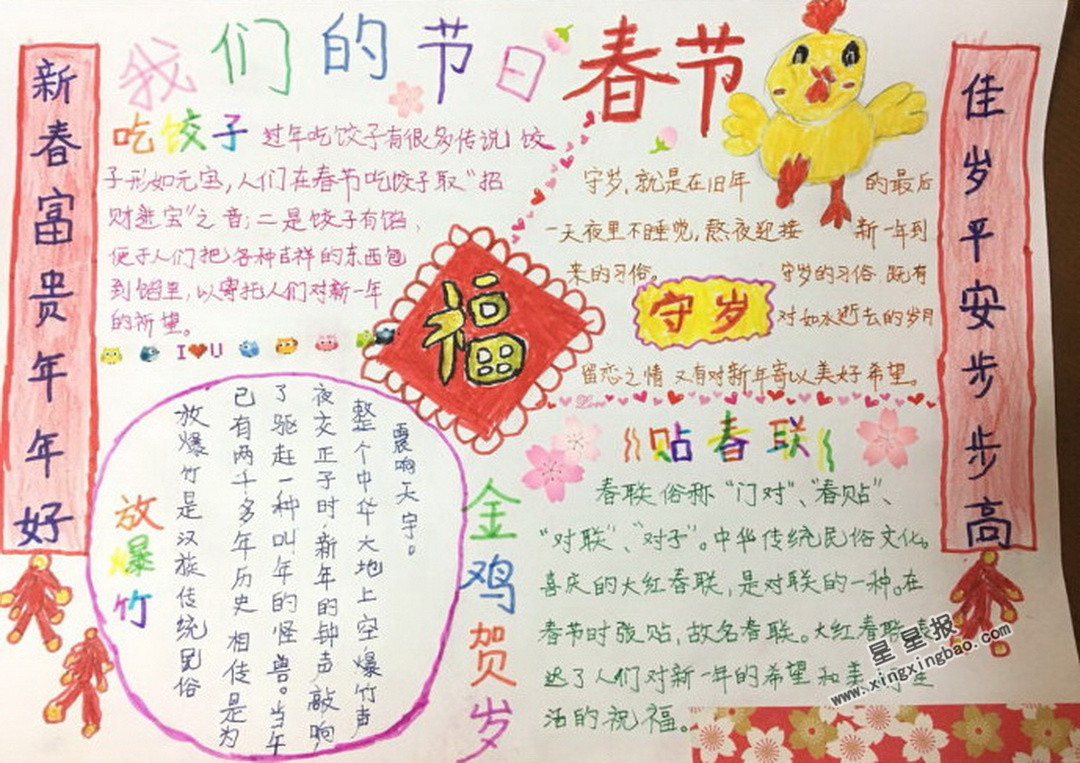 我们的节日 春节
新春富贵年年好
佳岁平安步步高
吃饺子
过年吃饺子有很多传说，饺
子形如元宝，人们在春节吃饺子取“招
财进宝”之音；二是饺子有馅，
便于人们把各种吉祥的东西包
到馅里，以寄托人们对新一年
的祈望。
I❤U
福
守岁，就是在旧年 的最后
一天夜里不睡觉，熬夜迎接 新一年到
来的习俗。 守岁的习俗 既有
守岁
对如水逝去的岁月
留恋之情 又有对新年寄以美好希望。
Love
放爆竹
放爆竹是汉族传统民俗
已有两千多年历史 相传是为
了驱赶一种叫年的怪兽。当年
夜交正子时，新年的钟声敲响
整个中华大地上空爆竹声
震响天宇。
金鸡贺岁
贴春联
春联俗称“门对”、“春贴”、
“对联”、“对子”。中华传统民俗文化。
喜庆的大红春联，是对联的一种。在
春节时张贴，故名春联。大红春联表
达了人们对新一年的希望和美
活的祝福。
星星报
www.xingxingbao.com